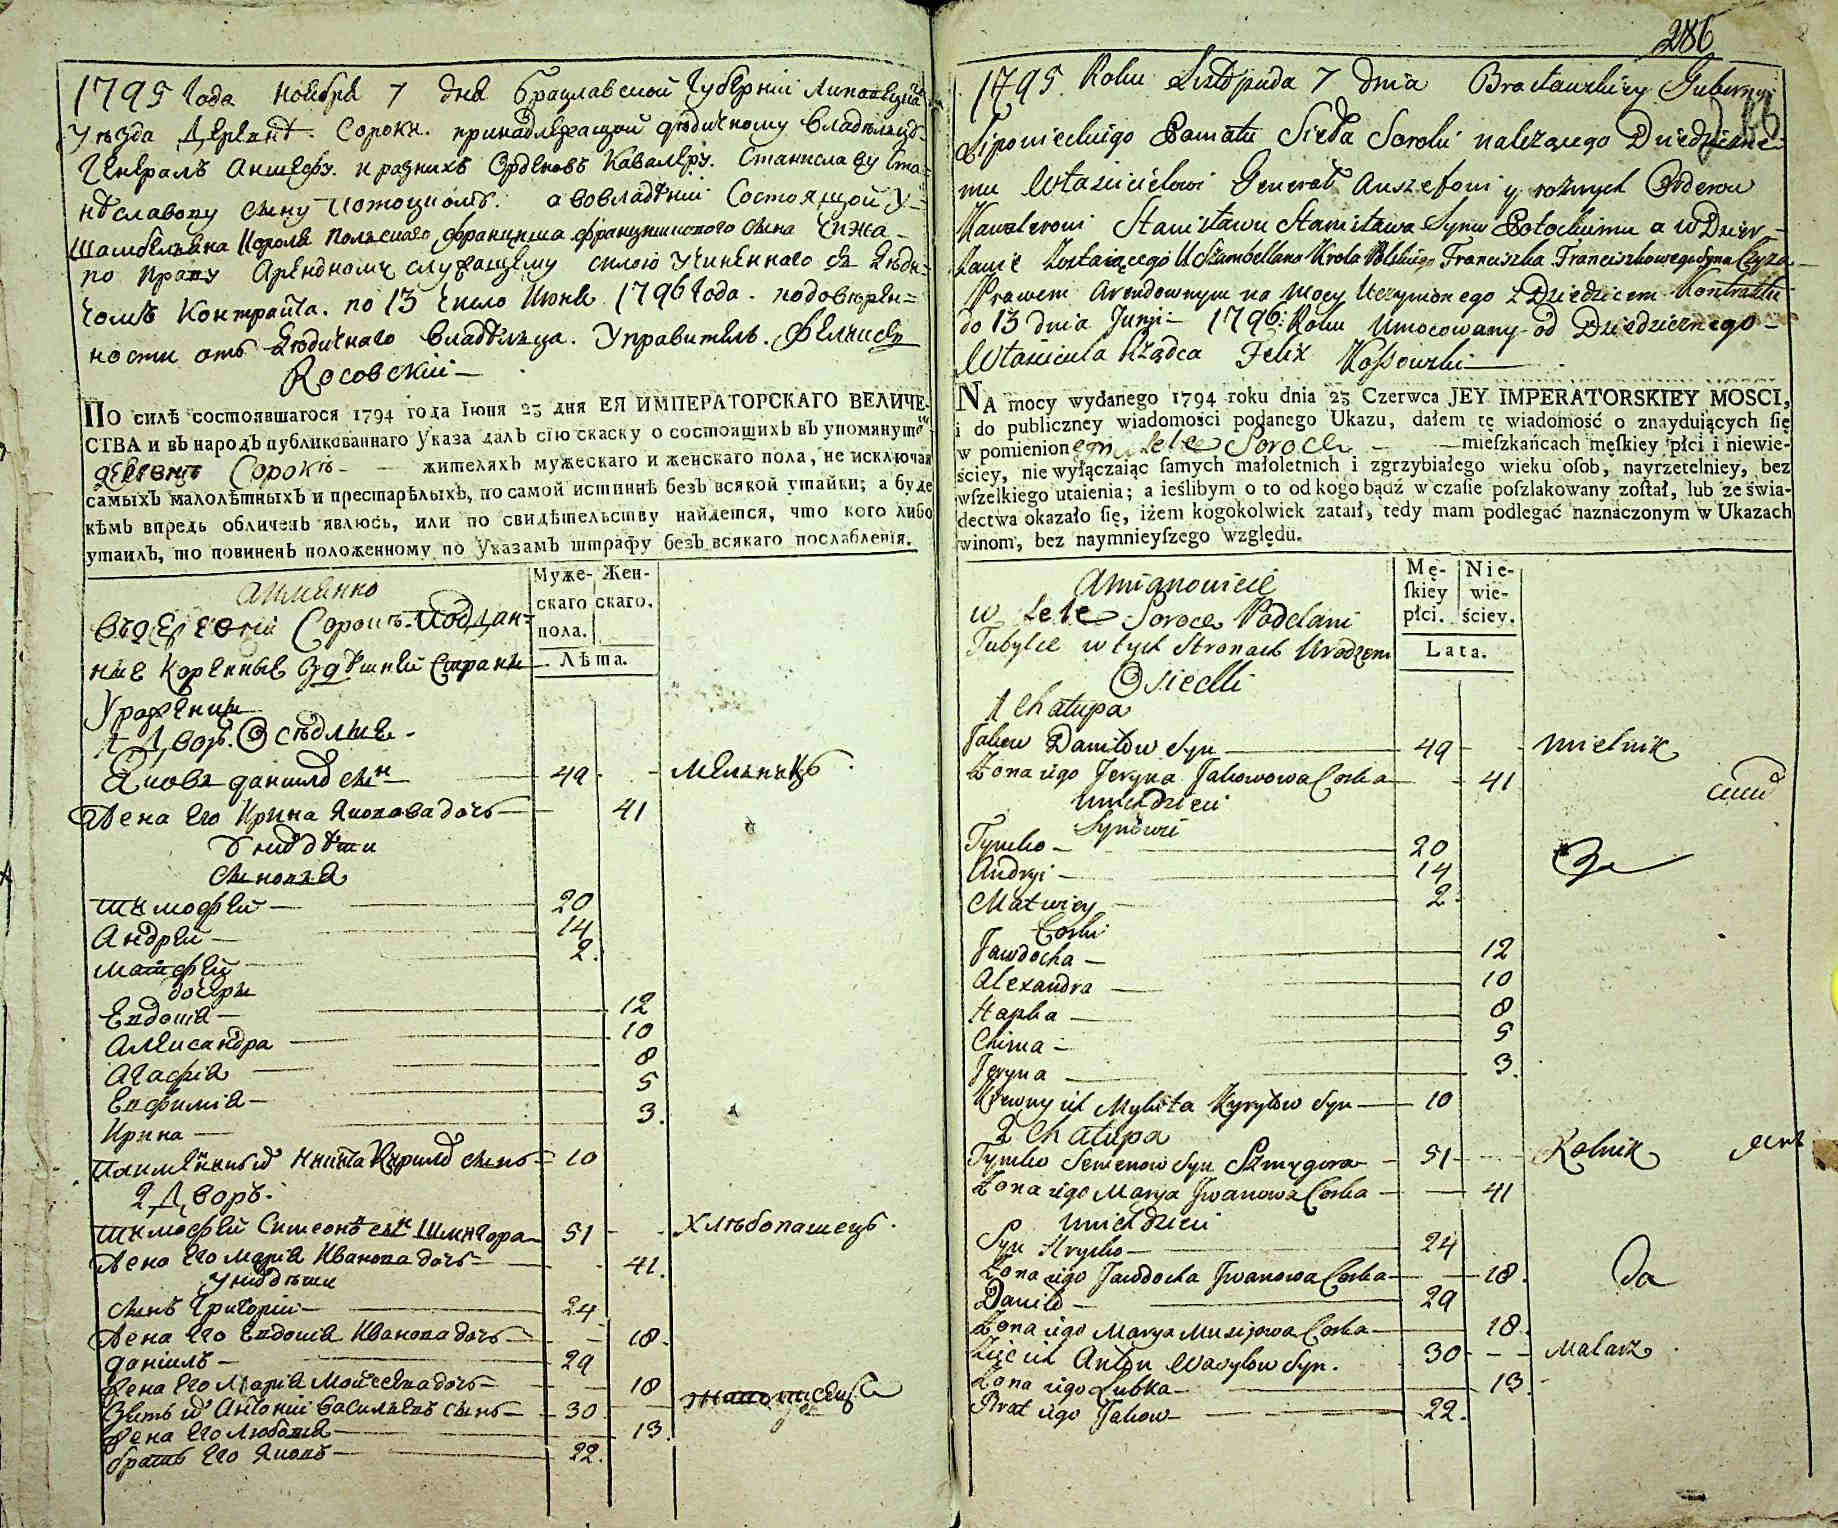 1795 Года Ноября 7 дня Брацлавской Губернїи Липовецкаго
Уѣзда Деревнѣ. Сороки. принадлежащой дѣдичному владѣльцу
Генералъ Аншефу. и разнихъ Орденовъ Кавалеру. Станиславу Ста=
ниславову сыну Потоцкомъ. а вовладѣнїи Состоящой у
Шамбеляна Короля Полскаго Францишка Францишкового сына Чижа
по праву Арендному служащему силою учиненнаго съ дѣди=
чомъ Контракта. по 13 число Июня 1796 Года. подовѣрен=
ности отъ дѣдичнаго владѣльца. Управитель. Феликсъ
Косовскїй
По силѣ состоявшагося 1794 года Iюня 23 дня ЕЯ ИМПЕРАТОРСКАГО ВЕЛИЧЕ-
СТВА и въ народъ публикованнаго Указа далъ сїю скаску о состоящихъ въ упомянутой
деревнѣ Сорокѣ жителяхъ мужескаго и женскаго пола, не исключая
самыхъ малолѣтныхъ и престарѣлыхъ, по самой истиннѣ безъ всякой утайки; а буде
кѣмъ впредь обличенъ явлюсь, или по свидѣтельству найдется, что кого либо
утаилъ, то повиненъ положенному по Указамъ штрафу безъ всякаго послабленїя.
Аимянно
Муже- Жен-
скаго скаго.
пола.
Лѣта.
въ деревнѣ Сорокѣ. Поддан-
ние Коренные Здѣшней Страны
Уроженцы
1 Дворъ. Осѣдлые.
Яковъ данилов сынъ 49 мельникъ
Жена его Ирина Яковова дочь 41
У них дѣти
сыновья
Тимофей 20
Андрей 14
Матфей 2.
дочери
Евдокїя 12
Александра 10
Агафїя 8
Евфимїя 5
Ирина 3.
Никита Кирилов сынъ 10
2 Дворъ.
Тимофей Симеонов сын Шмигора 51 хлѣбопашецъ.
Жена его Марїя Иванова дочь 41.
У них дѣти
сынъ Григорїй 24
Жена его Евдокїя Иванова дочь 18.
данїилъ 29
Жена его Марїя Мойсеева дочь 18
Зять их Антонїй Васильевъ сынъ 30
Жена его Любовя 19.
братъ его Яковъ 22.
286
1795. Roku Listopada 7 dnia Bracławskiey Gubernyi
Lipowieckiego Powiatu Sioła Soroki należącego Dziedziczne-
mu Właścicielowi Generał Anszefowi y rożnych Orderow
Kawalerowi Stanisławu Stanisława Synu Potockiemu a w Dzier-
żawie Zostaiącego U Szambellana Krola Polskiego Franciszka Franciszkowego Syna Czyża
Prawem Arendownym na mocy Uczynionego z Dziedzicem Kontraktu
do 13 dnia Junyi 1796: Roku Umocowany od Dziedzicznego
Właściciela Rządca Felix Kossowski
NA mocy wydanego 1794 roku dnia 23 Czerwca JEY IMPERATORSKIEY MOSCI,
i do publiczney wiadomości podanego Ukazu, dałem tę wiadomość o znayduiących się
w pomienionego Sele Soroce mieszkańcach męskiey płci i niewie-
ściey, nie wyłączaiąc samych małoletnich i zgrzybiałego wieku osob, nayrzetelniey, bez
wszelkiego utaienia; a ieślibym o to od kogo bądź w czasie poszlakowany został, lub ze świa-
dectwa okazało się, iżem kogokolwiek zataił, tedy mam podlegać naznaczonym w Ukazach
winom, bez naymnieyszego względu.
Amianowicie
Mę- Nie-
skiey wie-
płci. ściey.
Lata.
w Sele Soroce Poddani
Tubylce w tych Stronach Urodzeni
Osiedli
1 Chałupa
Jakow Daniłow Syn 49 mielnik
Żona iego Jeryna Jakowowa Corka 41
U nich dzieci
Synowie
Tymko 20
Andryi 14
Matwiey 2.
Corki
Jawdocha 12
Alexandra 10
Hapka 8
Chima 5
Jeryna 3.
Krewny ich Mykita Kyryłow Syn 10
2 Chałupa
Tymko Semenow Syn Szmygora 51 Rolnik
Żona iego Marya Jwanowa Corka 41
U nich dzieci
Syn Hryćko 24
Żona iego Jawdocha Jwanowa Corka 18.
Daniło 29
Żona iego Marya Musijowa Corka 18.
Zięć ich Anton Wasylow Syn. 30 Malarz
Żona iego Lubka 19.
Brat iego Jakow 22.